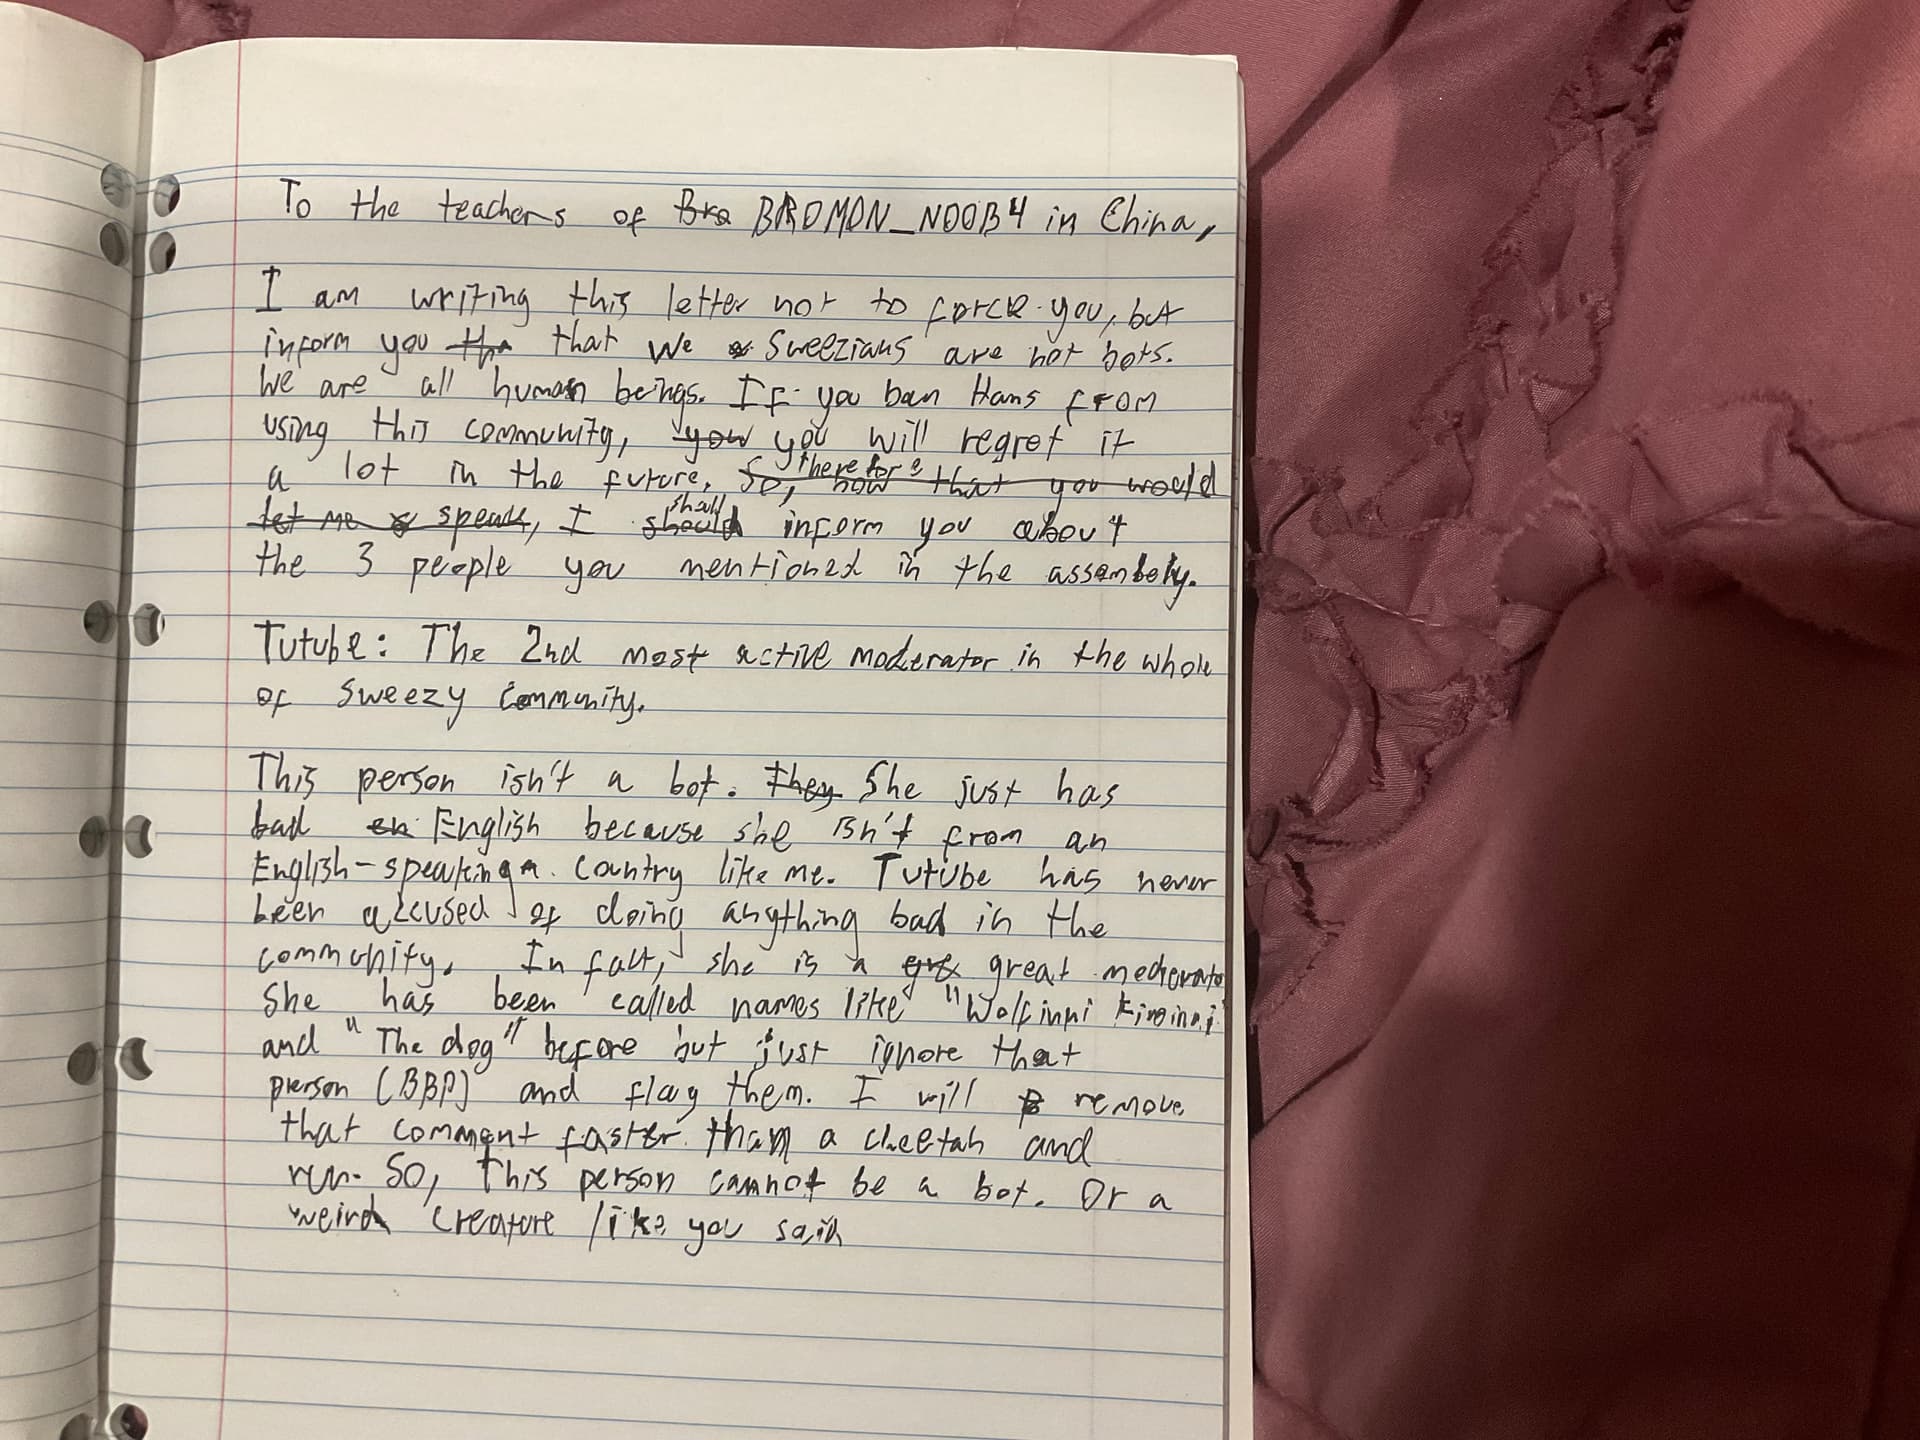 To the teachers of Bro BROMON_NOOB4 in China,
I am writing this letter not to force you, but
inform you tha that we Sweezians are not bots.
We are all human beings. If you ban Hans from
using this community, you you will regret it
a lot in the future. So, therefore now that you would
let me speak, I should shall inform you about
the 3 people you mentioned in the assembely.
Tutube: The 2nd most active moderator in the whole
of Sweezy Community.
This person isn't a bot. They She just has
bad en English because she isn't from an
English-speaking country like me. Tutube has never
been accused of doing anything bad in the
community. In fact, she is a gre great moderator
She has been called names like "Wolfinni
and "The dog" before but just ignore that
person (BBP) and flag them. I will remove
that comment faster than a cheetah and
run. So, this person cannot be a bot. Or a
weird creature like you said